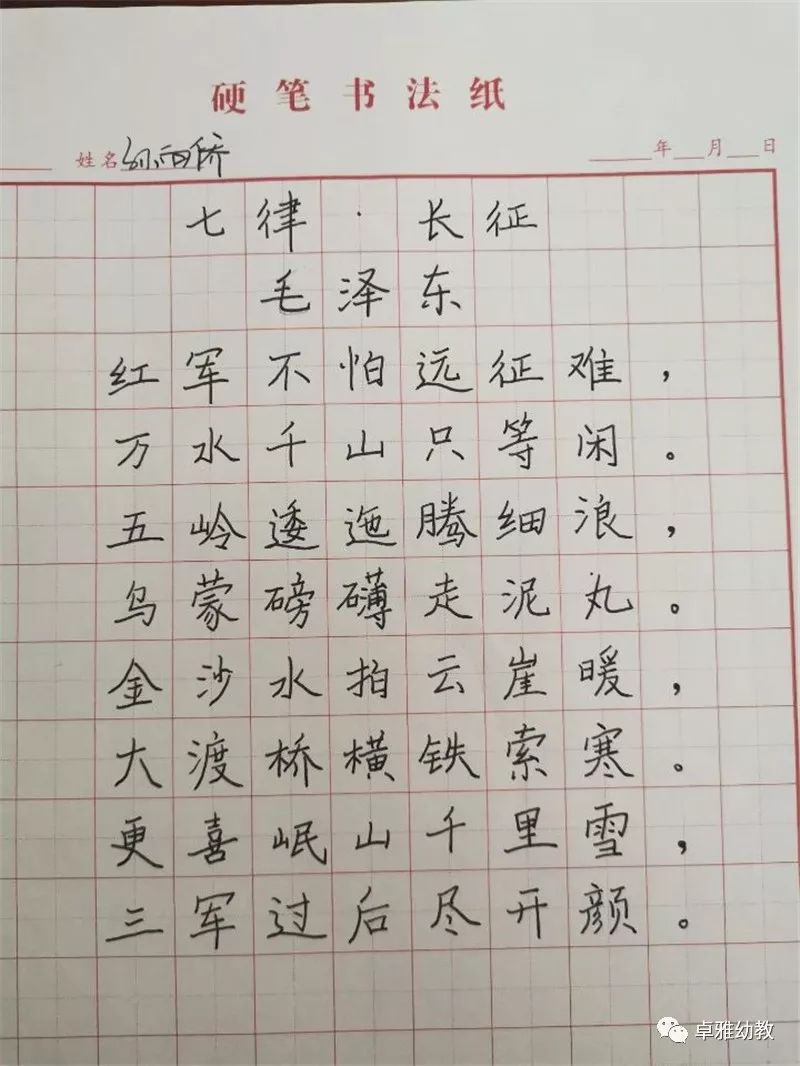 硬笔书法纸
姓名 孙雨侨 年 月 日
七律·长征
毛泽东
红军不怕远征难，
万水千山只等闲。
五岭逶迤腾细浪，
乌蒙磅礴走泥丸。
金沙水拍云崖暖，
大渡桥横铁索寒。
更喜岷山千里雪，
三军过后尽开颜。
卓雅幼教